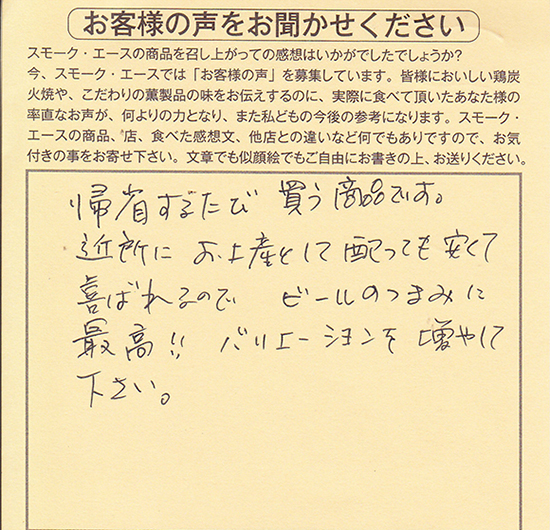 お客様の声をお聞かせください
スモーク・エースの商品を召し上がっての感想はいかがでしたでしょうか?
今、スモーク・エースでは「お客様の声」を募集しています。皆様においしい鶏炭
火焼や、こだわりの薫製品の味をお伝えするのに、実際に食べて頂いたあなた様の
率直なお声が、何よりの力となり、また私どもの今後の参考になります。スモーク・
エースの商品、店、食べた感想文、他店との違いなど何でもありですので、お気
付きの事をお寄せ下さい。文章でも似顔絵でもご自由にお書きの上、お送りください。
帰省するたび 買う商品です。
近所に お土産として配っても安くて
喜ばれるので ビールのつまみに
最高!! バリエーションを増やして
下さい。